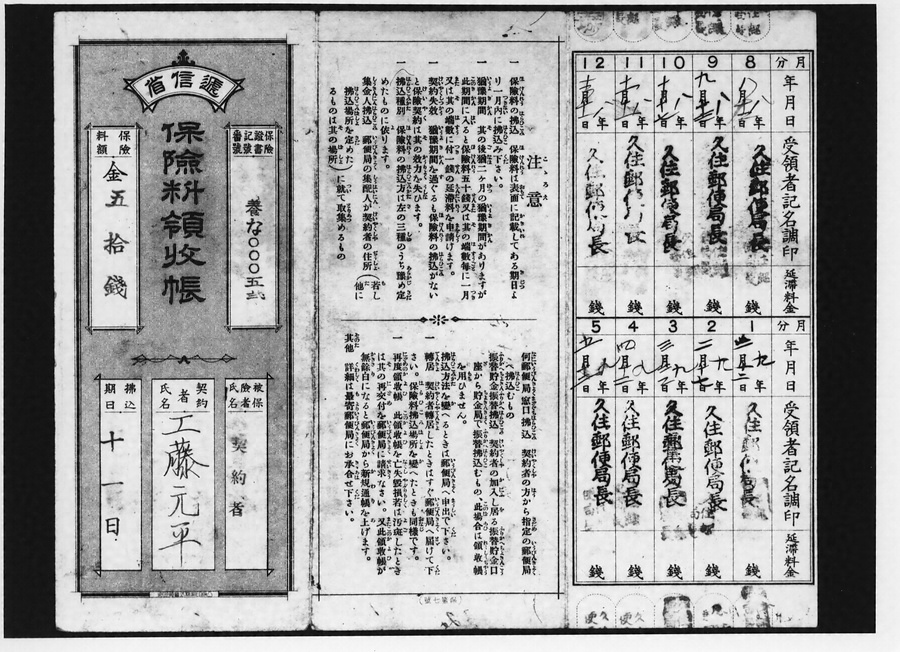 12 11 10 9 8 月分
年月日
受領者記名調印
延滞料金
年 月 日
久住郵便局長
錢
年 月 日
久住郵便局長
錢
年 月 日
久住郵便局長
錢
年 月 日
久住郵便局長
錢
年 月 日
久住郵便局長
錢
5 4 3 2 1 月分
年月日
受領者記名調印
延滞料金
年 月 日
久住郵便局長
錢
年 月 日
久住郵便局長
錢
年 月 日
久住郵便局長
錢
年 月 日
久住郵便局長
錢
年 月 日
久住郵便局長
錢
注意
一 保險料の拂込 保險料は表面に記載してある期日よ
り一月內に拂込み下さい。
一 猶豫期間 其の後猶二ヶ月の猶豫期間がありますが
此期間に入ると保險料五十錢又は其の端數每に一月
又は其の端數に付一錢の延滯料を申請けます。
一 契約失效 猶豫期間を過ぐるも保險料の拂込がない
と保險契約は其の效力を失ひます。
一 拂込種別 保險料の拂込方は左の三種のうち豫め定
めたものに依ります。
集金人拂込 郵便局の集配人が契約者の住所(若し他に
拂込場所を定めた
るものは其の場所)に就て取集めるもの
何郵便局窓口拂込 契約者の方から指定の郵便局
へ拂込むもの
振替貯金振替拂込 契約者の加入し居る振替貯金口
座から貯金局で振替拂込むもの、此場合は領收帳
を用ひません。
拂込方法を變へるときは郵便局へ申出で下さい。
一 轉居 契約者轉居したときはすぐ郵便局へ届けて下
さい。保險料拂込場所を變へたときも同樣です。
一 再度領收帳 此領收帳を亡失毀損若は汚斑したとき
は其の再交付を郵便局に請求なさい。又此領收帳が
無餘白になると郵便局から新規通帳を上げます。
其他 詳細は最寄郵便局にお承合せ下さい。
遞信省
保險料領收帳
保險證書記號番號
養な〇〇〇五弐
保險料額
金五拾錢
被保險者氏名
契約者
契約者氏名
工藤元平
拂込期日
十一日